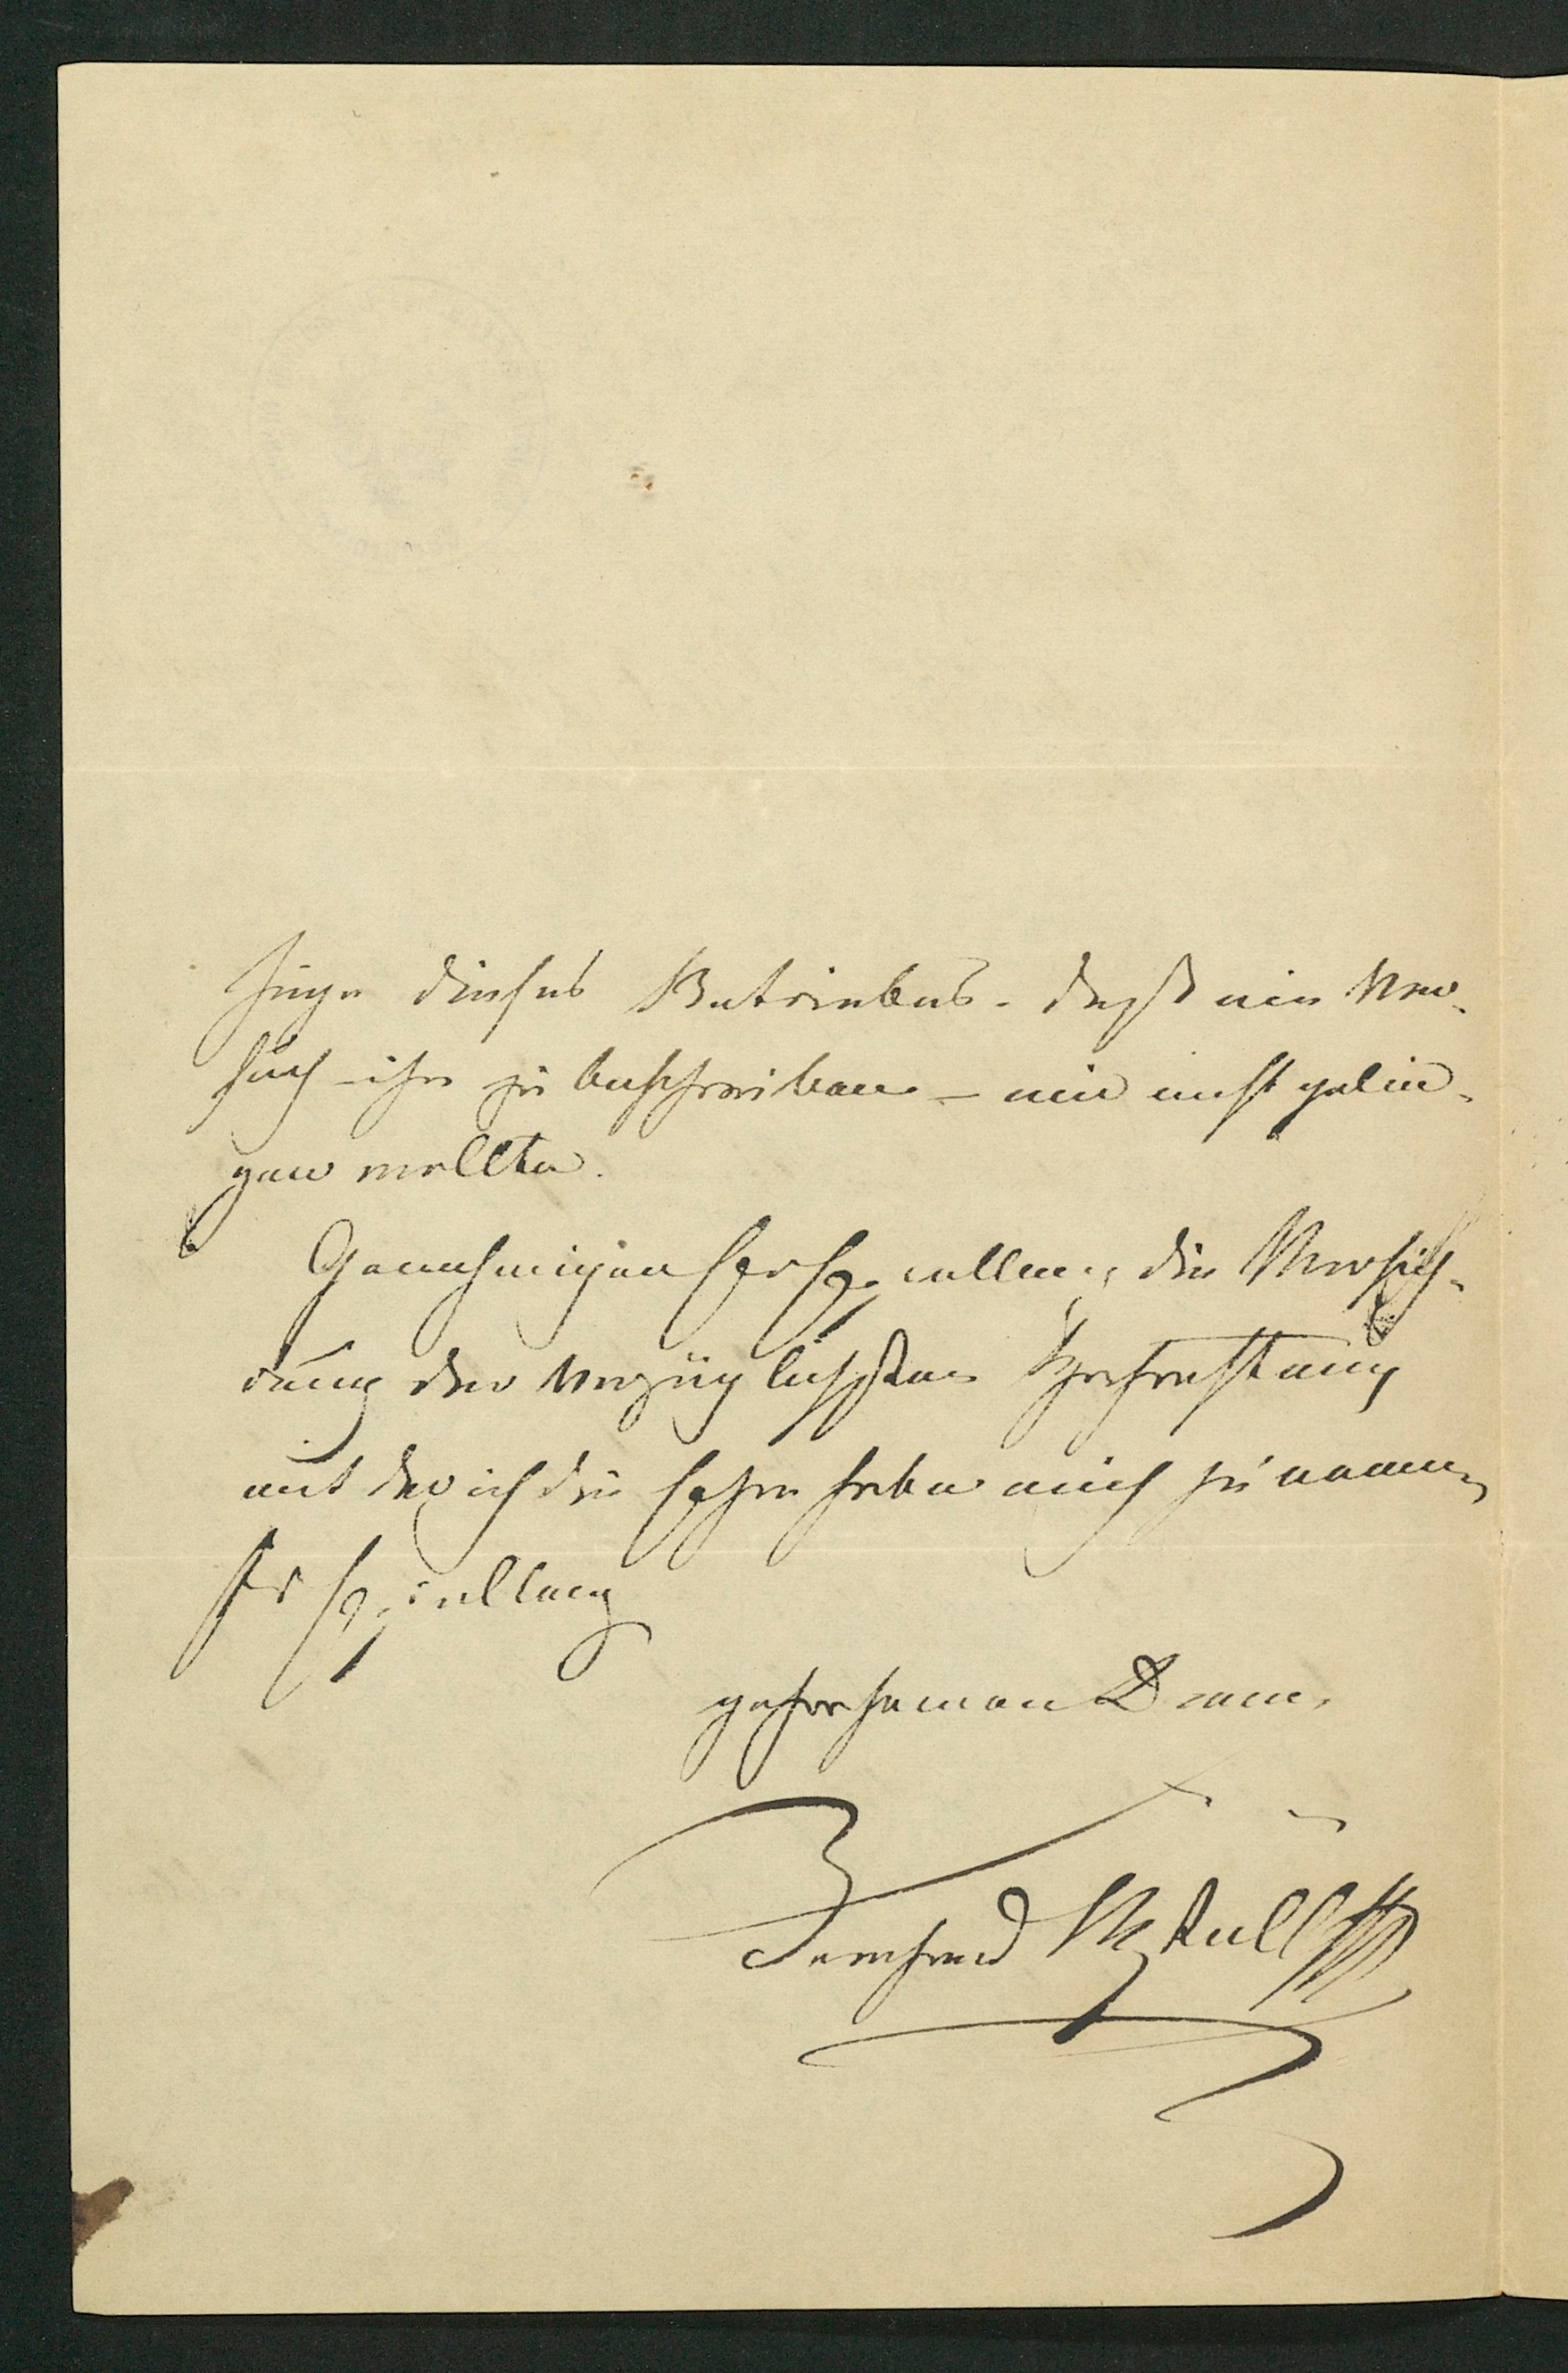 zuge dieses Betriebes. daß ein Ver-
such – ihn zu beschreiben – mir nicht gelin-
gen wollte.
Genehmigen Er Excellenz die Versich-
rung der vorzüglichsten Hochachtung
mit der ich die Ehre habe mich zu nennen
Er Excellenz
gehorsamen Diener
Bernhard